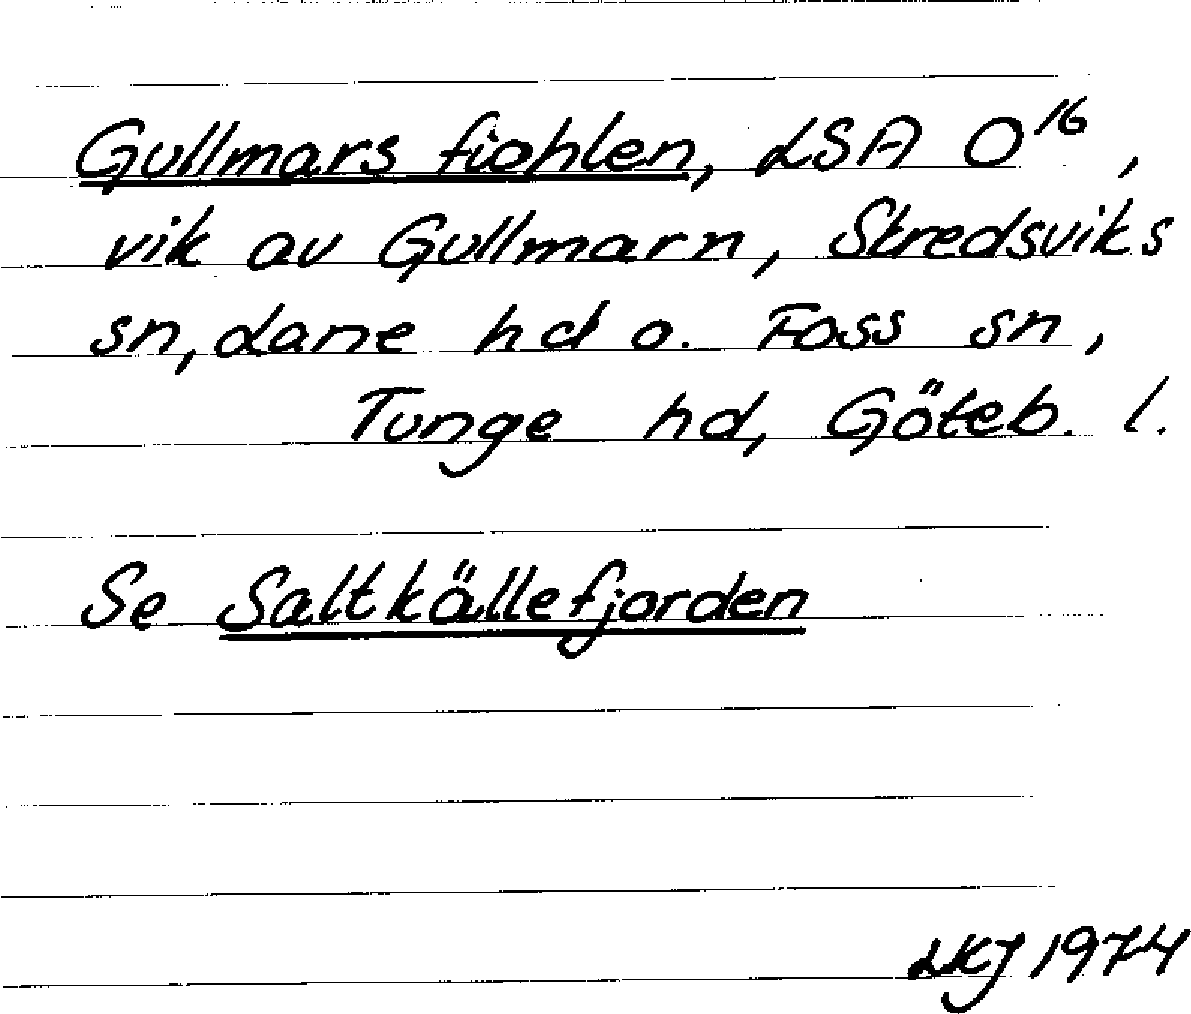 Gullmars fiohlen, LSA O¹⁶,
vik av Gullmarn, Skredsviks
sn, Lane hd o. Foss sn,
Tunge hd, Göteb. l.
Se Saltkällefjorden
LKJ 1974